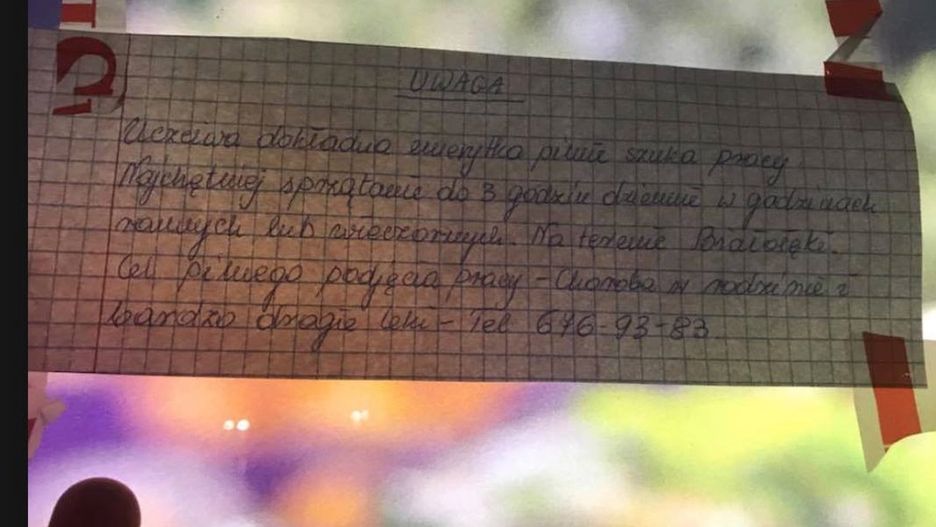 UWAGA
Uczciwa dokładna emerytka pilnie szuka pracy
Najchętniej sprzątanie do 3 godzin dziennie w godzinach
rannych lub wieczornych. Na terenie Białołęki.
Cel pilnego podjęcia pracy - Choroba w rodzinie i
bardzo drogie leki - Tel 676-93-83.